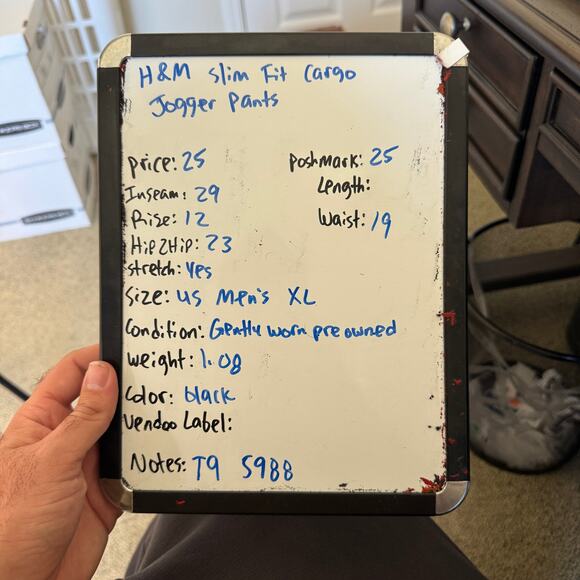 H&M Slim Fit Cargo
Jogger Pants
Price: 25
Poshmark: 25
Inseam: 29
Length:
Rise: 12
Waist: 19
Hip2Hip: 23
Stretch: Yes
Size: US Men's XL
Condition: Gently worn pre owned
Weight: 1.08
Color: black
Vendoo Label:
Notes: T9 S988